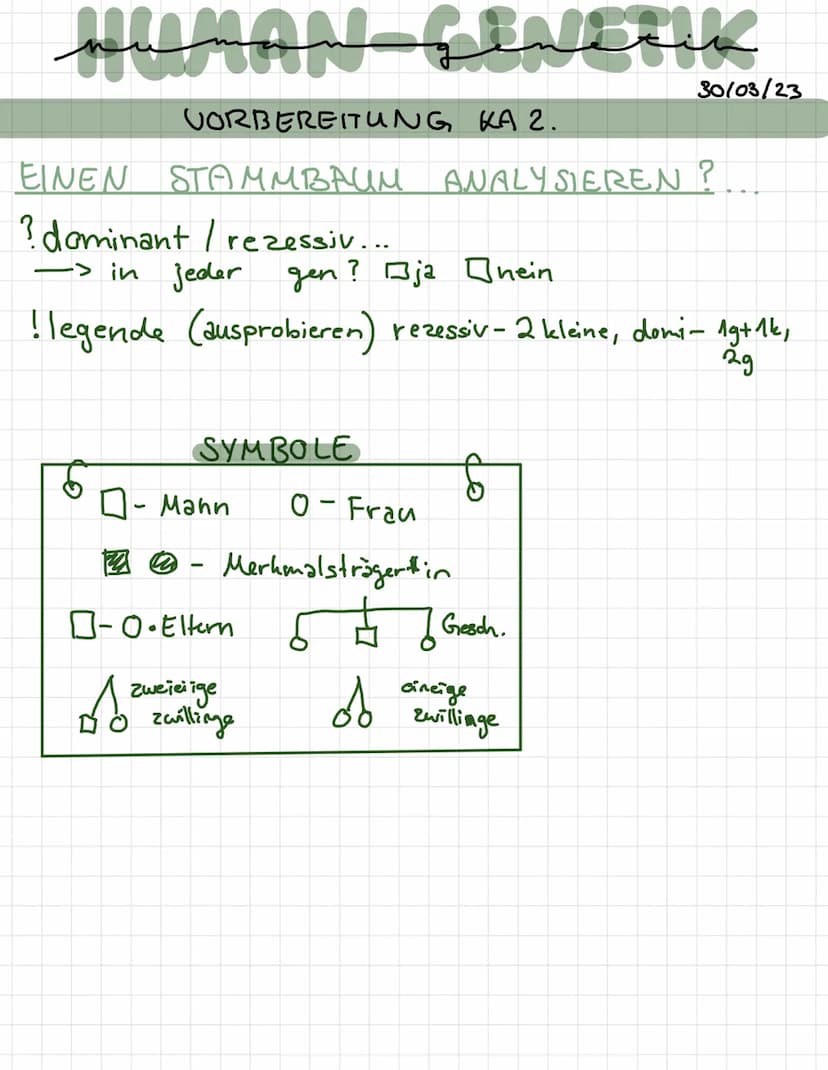 HUMAN-GENETIK
human-genetik
30/03/23
VORBEREITUNG KA 2.
EINEN STAMMBAUM ANALYSIEREN?...
? dominant / rezessiv...
—> in jeder gen? □ja □nein
! legende (ausprobieren) rezessiv - 2 kleine, domi - 1g+1k,
2g
SYMBOLE
□ - Mann O - Frau
- Merkmalsträger*in
□-O • Eltern Gesch.
zweieiige eineige
zwillinge zwillinge